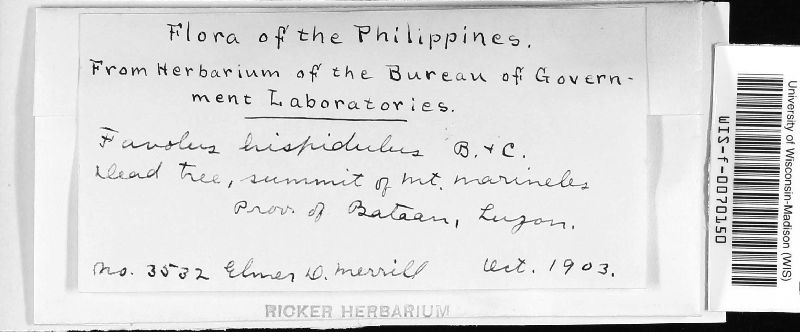 Flora of the Philippines.
From Herbarium of the Bureau of Govern-
ment Laboratories.
Favolus hispidulus B. & C.
Dead tree, summit of Mt. Marineles
Prov. of Bataan, Luzon.
No. 3532 Elmer D. Merrill Oct. 1903.
RICKER HERBARIUM
University of Wisconsin-Madison (WIS)
WIS-f-0070150